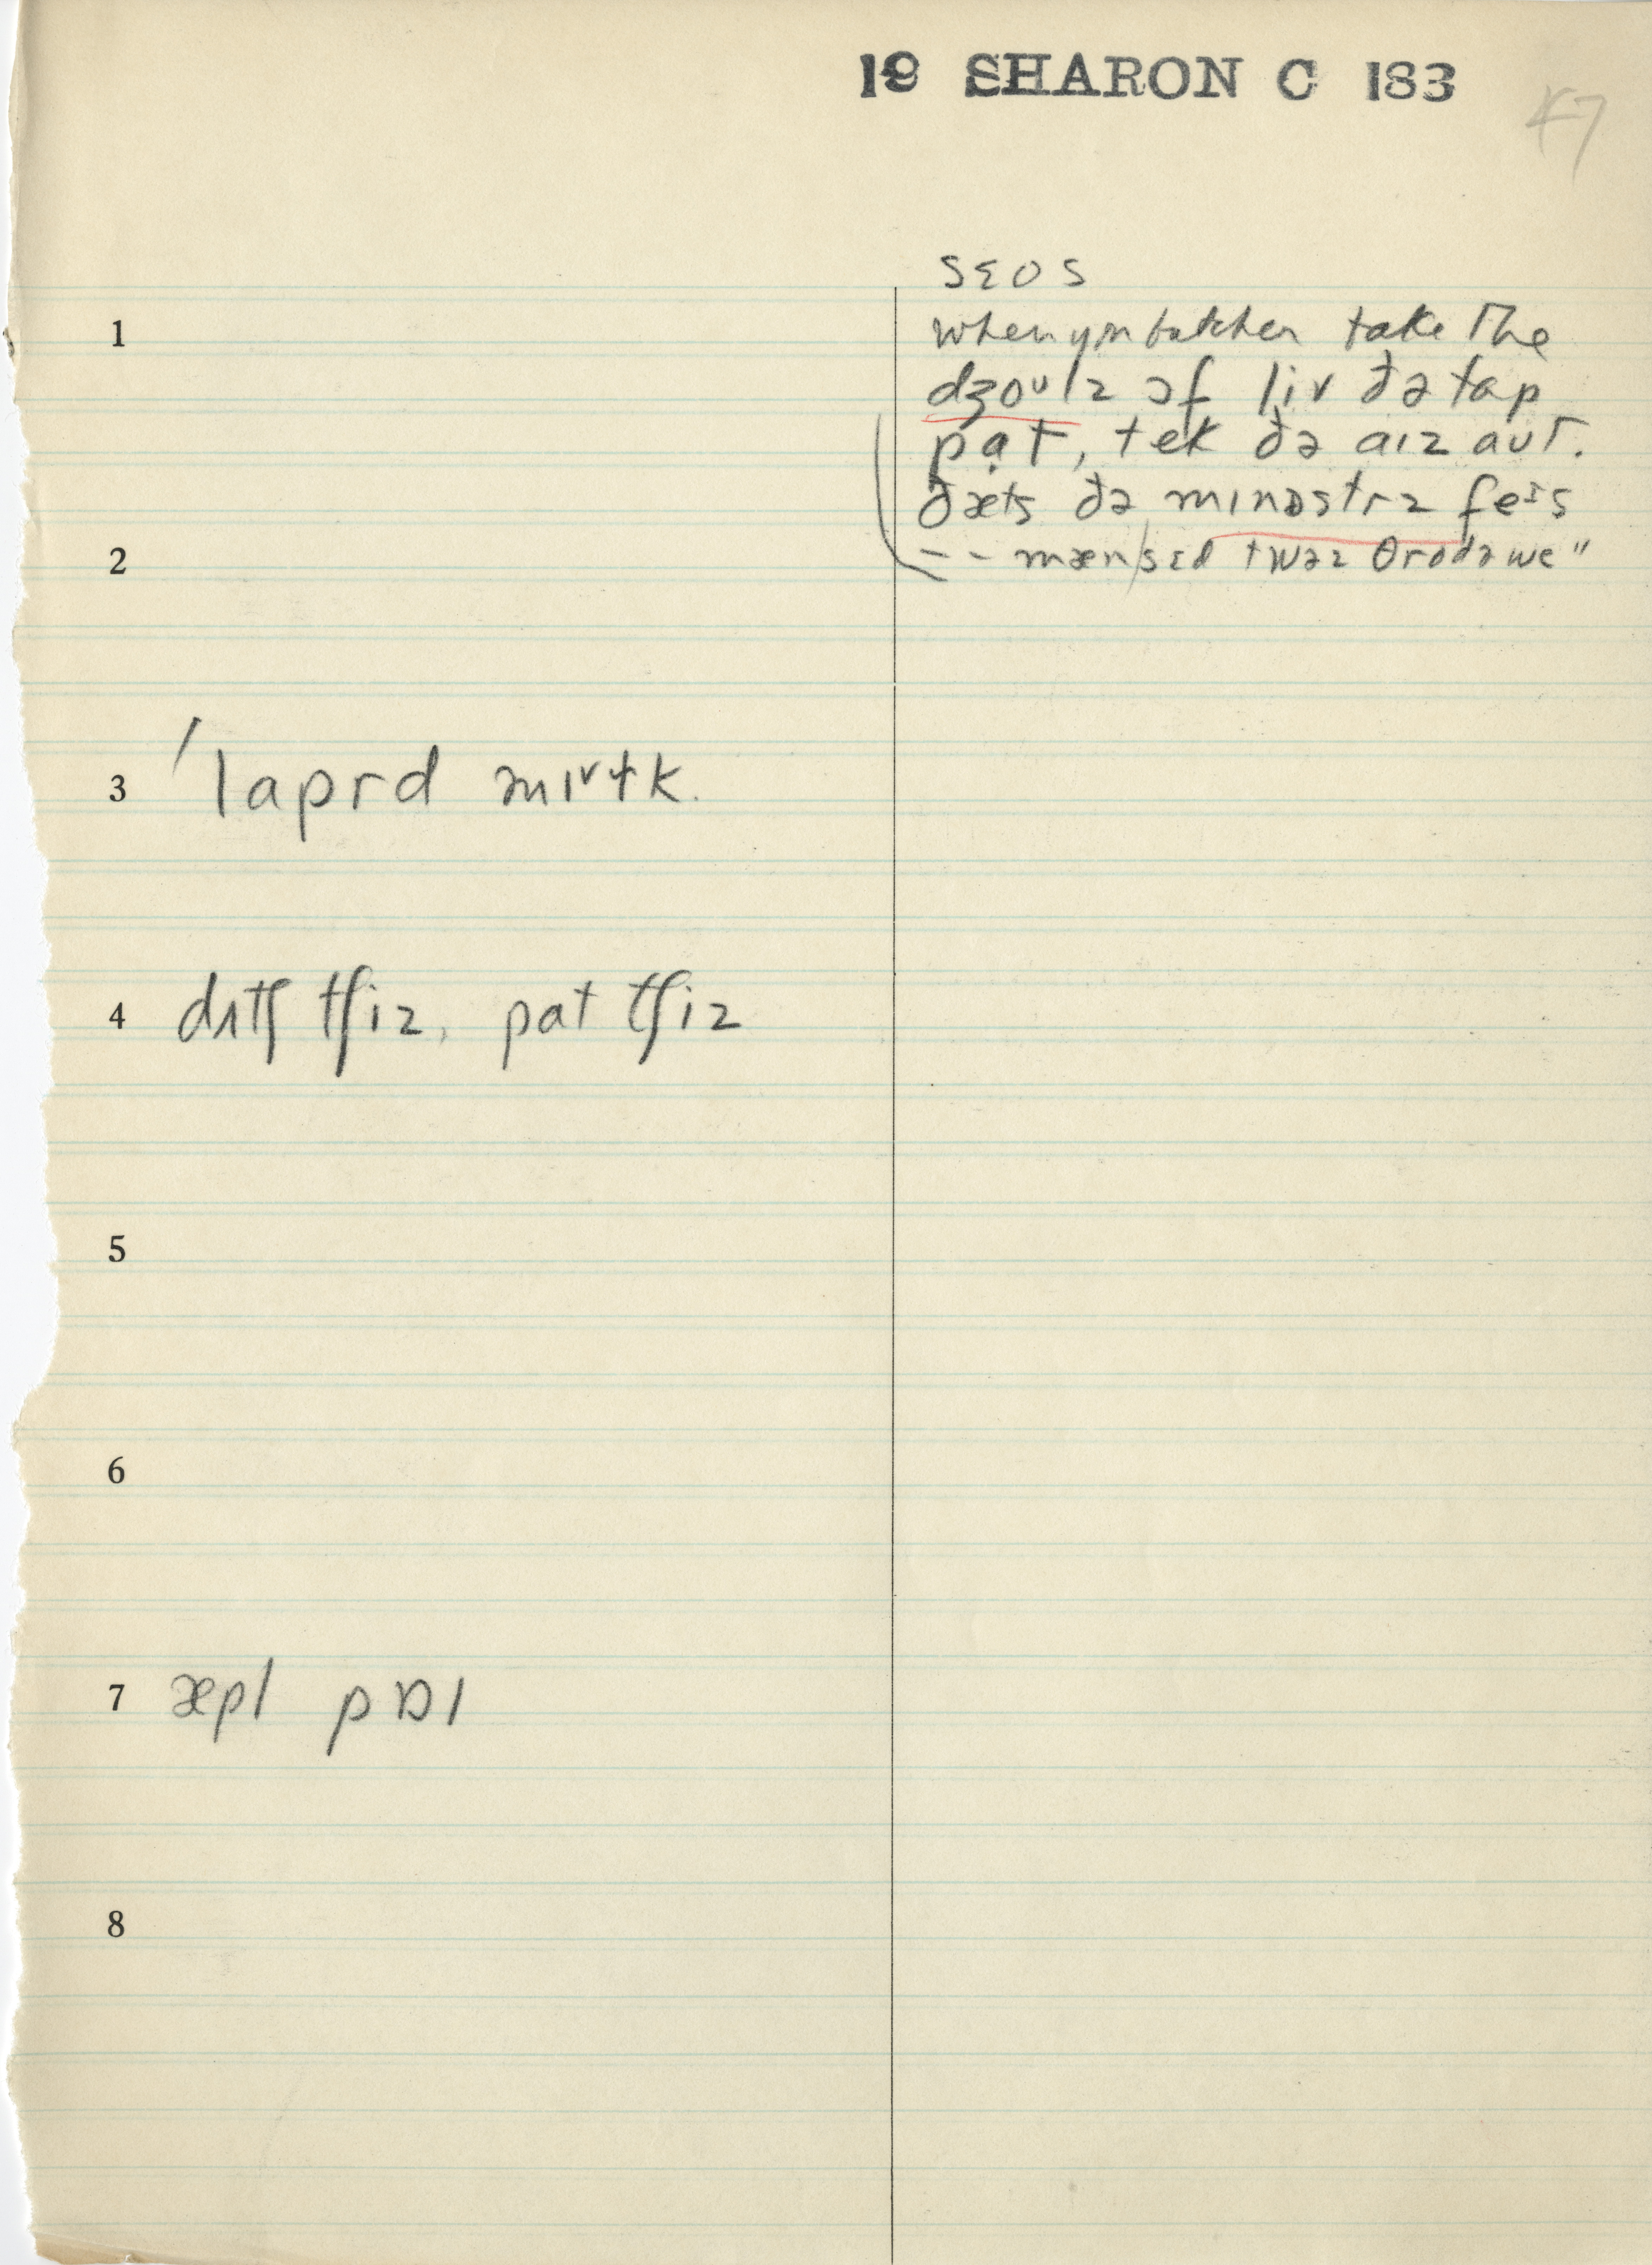 19 SHARON C 183
47
sɛos
1 when you butcher take the
dʒoulz ɔf liv ðə tap
pat, tek ðə aɪz aut.
ðæts ðə mɪnɒstrz feɪs
2 -- mæn sɛd twəz θrodəwe"
3 ' laprd mɪvlk.
4 dʌtʃ tʃiz, pat tʃiz
5
6
7 æpl pɒɪ
8